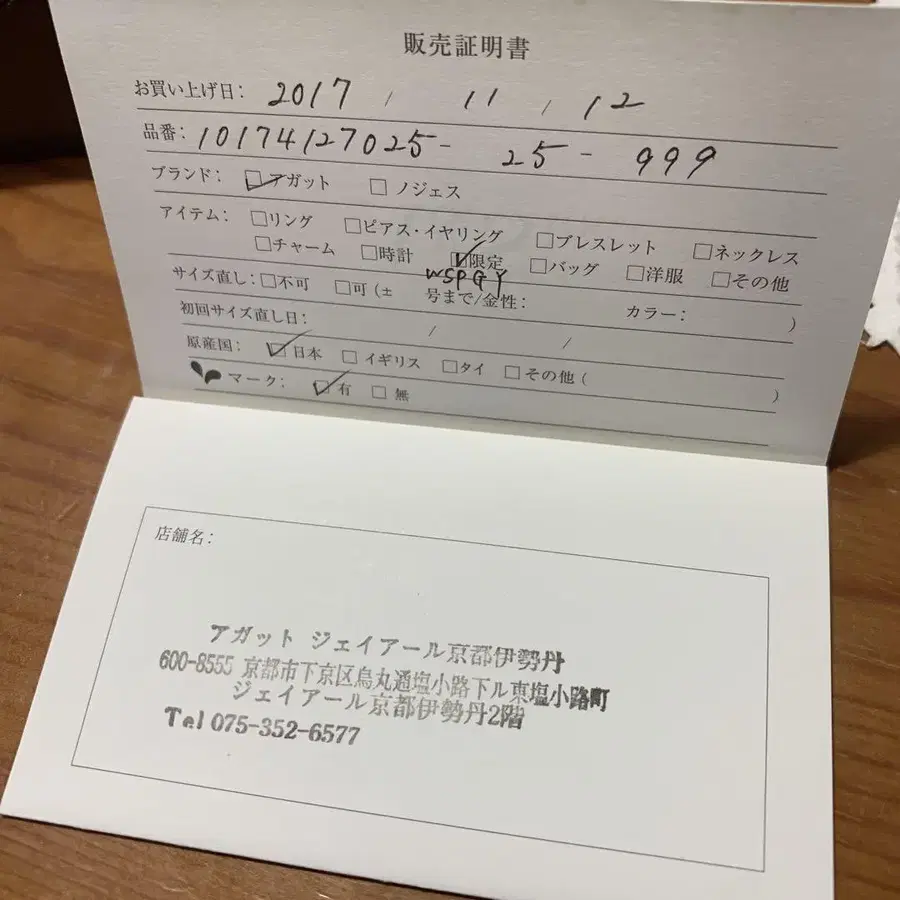 販売証明書
お買い上げ日: 2017 / 11 / 12
品番: 10174127025- 25 - 999
ブランド: ☑アガット □ ノジェス
アイテム: □リング □ピアス・イヤリング □ブレスレット □ネックレス
□チャーム □時計 ☑限定 □バッグ □洋服 □その他
WSPGY
サイズ直し: □不可 □可 (± 号まで/金性: カラー: )
初回サイズ直し日: / /
原産国: ☑日本 □イギリス □タイ □その他 ( )
マーク: ☑有 □無
店舗名:
アガット ジェイアール京都伊勢丹
600-8555 京都市下京区烏丸通塩小路下ル東塩小路町
ジェイアール京都伊勢丹2階
Tel 075-352-6577